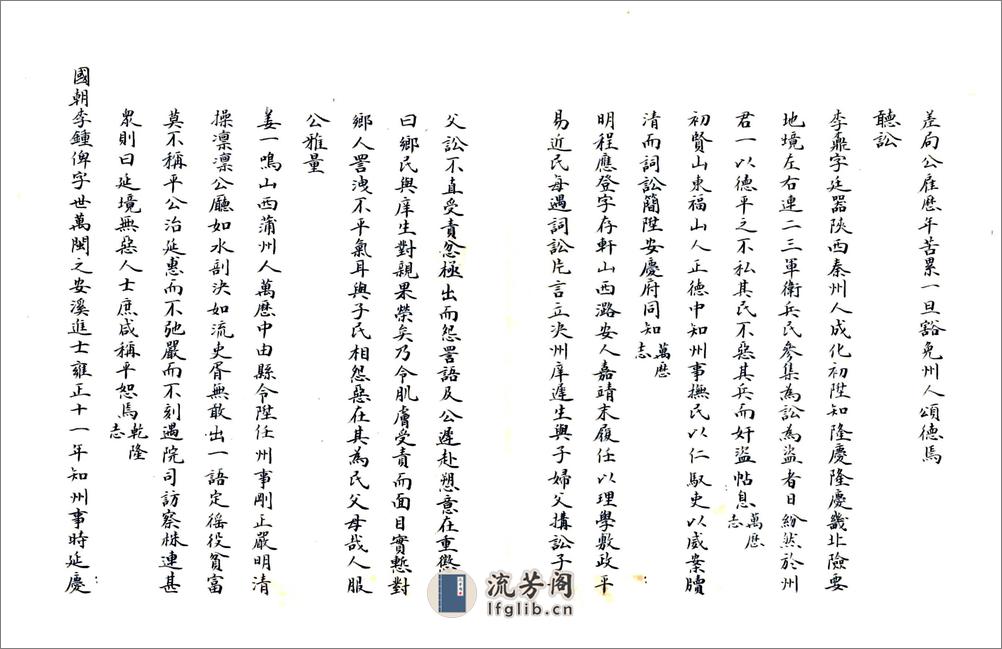 差局公雇歷年苦累一旦豁免州人頌德焉
聽訟
李鼐字廷器陝西秦州人成化初陞知隆慶隆慶畿北險要
地境左右連二三軍衛兵民參集為訟為盜者日紛然於州
君一以德平之不私其民不惡其兵而奸盜帖息萬歷志
初賢山東福山人正德中知州事撫民以仁馭吏以威案牘
清而詞訟簡陞安慶府同知萬歷志
明程應登字存軒山西潞安人嘉靖末履任以理學敷政平
易近民每遇詞訟片言立決州庠遲生與子婦父搆訟子
父訟不直受責忿極出而怨詈語及公遲赴愬意在重懲
曰鄉民與庠生對親果榮矣乃令肌膚受責而面目實慙對
鄉人詈洩不平氣耳與子民相怨惡在其為民父母哉人服
公雅量
姜一鳴山西蒲州人萬歷中由縣令陞任州事剛正嚴明清
操凛凛公廳如水剖決如流吏胥無敢出一語定徭役貧富
莫不稱平公治延惠而不弛嚴而不刻遇院司訪察株連甚
眾則曰延境無惡人士庶咸稱平恕焉乾隆志
國朝李鍾俾字世萬閩之安溪進士雍正十一年知州事時延慶
流芳阁
lfglib.cn